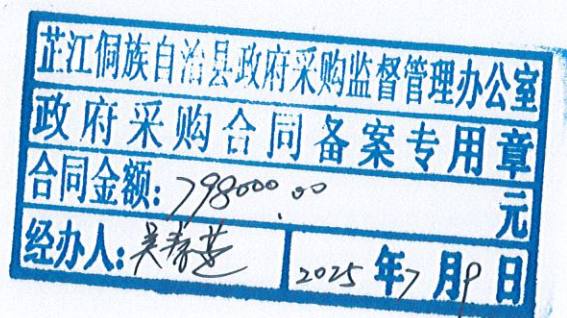 芷江侗族自治县政府采购监督管理办公室
政府采购合同备案专用章
合同金额: 798000.00 元
经办人: 吴春莲 2025 年 7 月 9 日